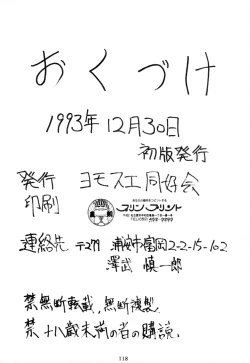 おくづけ
1993年12月30日
初版発行
発行 ヨモスエ同好会
印刷 プリン・プリント
連絡先 〒279 浦安市富岡2-2-15-102
澤武 慎一郎
禁無断転載,無断複製.
禁十八歳未満の者の購読.
118